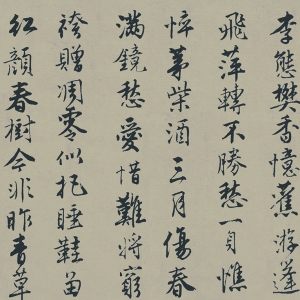 李態樊香憶舊游蓬
飛萍轉不勝愁一身憔
悴茅柴酒三月傷春
滿鏡愁愛惜難將窮
袴贈凋零似把睡鞋留
紅顏春樹今非昨青草